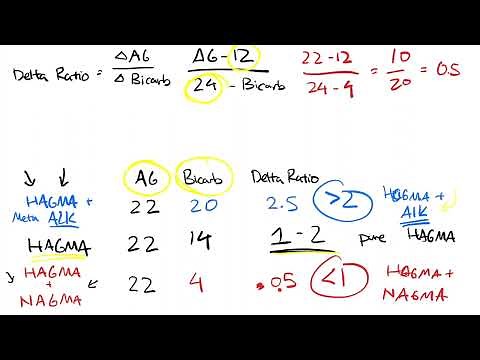 Delta Ratio = ΔAG / Δ Bicarb   ΔG - 12 / 24 - Bicarb   22 - 12 / 24 - 4 = 10 / 20 = 0.5
AG Bicarb Delta Ratio
HAGMA + Meta ALK 22 20 2.5 >2 HAGMA + ALK
HAGMA 22 14 1 - 2 pure HAGMA
HAGMA + NAGMA 22 4 0.5 <1 HAGMA + NAGMA